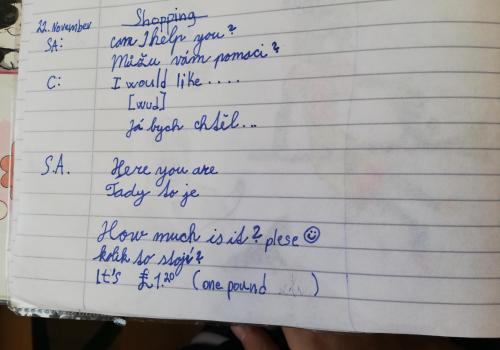 Shopping
22. November
SA: can I help you?
Můžu vám pomoci?
C: I would like....
[wud]
Já bych chtěl...
S.A. Here you are
Tady to je
How much is it? plese ☺
kolik to stojí?
It's £1.20 (one pound )